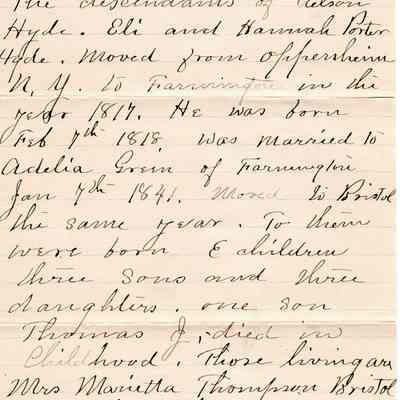 The descendants of Nelson
Hyde. Eli and Hannah Porter
Hyde. Moved from Oppenheim
N. Y. to Farmington in the
year 1817. He was born
Feb 7th 1818 was married to
Adelia Grem of Farmington
Jan 7th 1841. Moved to Bristol
the same year. To them
were born 6 children
three sons and three
daughters. one son
Thomas J, died in
Childhood. Those living are
Mrs Marietta Thompson Bristol